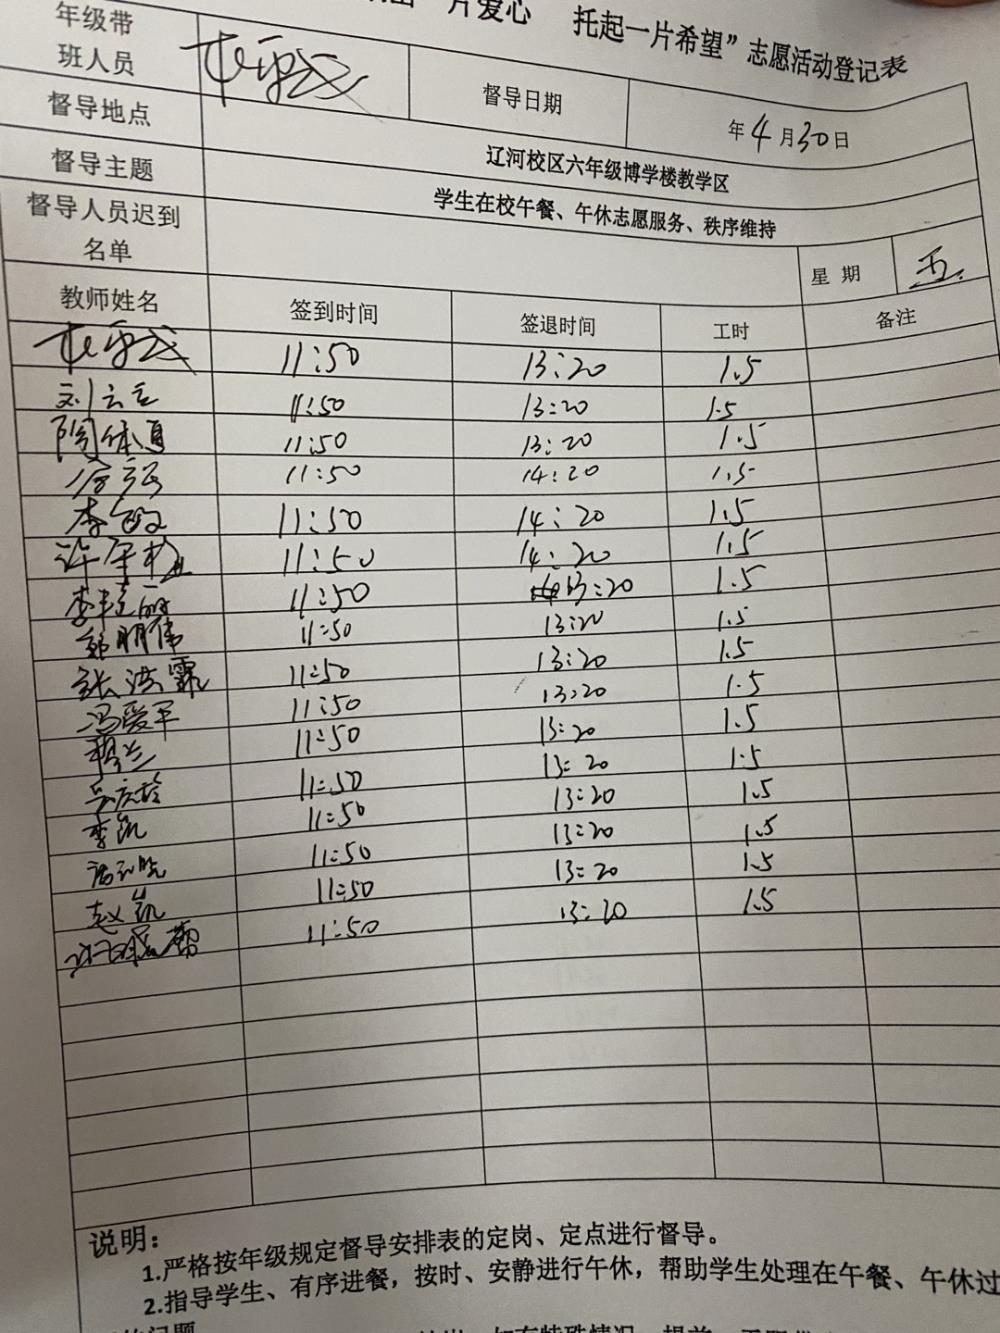 片爱心 托起一片希望”志愿活动登记表
年级带
班人员
督导日期
年4月30日
督导地点
辽河校区六年级博学楼教学区
督导主题
学生在校午餐、午休志愿服务、秩序维持
督导人员迟到
名单
星 期
五.
教师姓名 签到时间 签退时间 工时 备注
11:50 13:20 1.5
11:50 13:20 1.5
11:50 13:20 1.5
11:50 14:20 1.5
李敏 11:50 14:20 1.5
11:50 14:20 1.5
11:50 13:20 1.5
郭明伟 11:50 13:20 1.5
张洪霖 11:50 13:20 1.5
冯爱军 11:50 13:20 1.5
穆兰 11:50 13:20 1.5
吴庆玲 11:50 13:20 1.5
李凯 11:50 13:20 1.5
11:50 13:20 1.5
赵凯 11:50 13:20 1.5
11:50 13:20 1.5
说明：
1.严格按年级规定督导安排表的定岗、定点进行督导。
2.指导学生、有序进餐，按时、安静进行午休，帮助学生处理在午餐、午休过